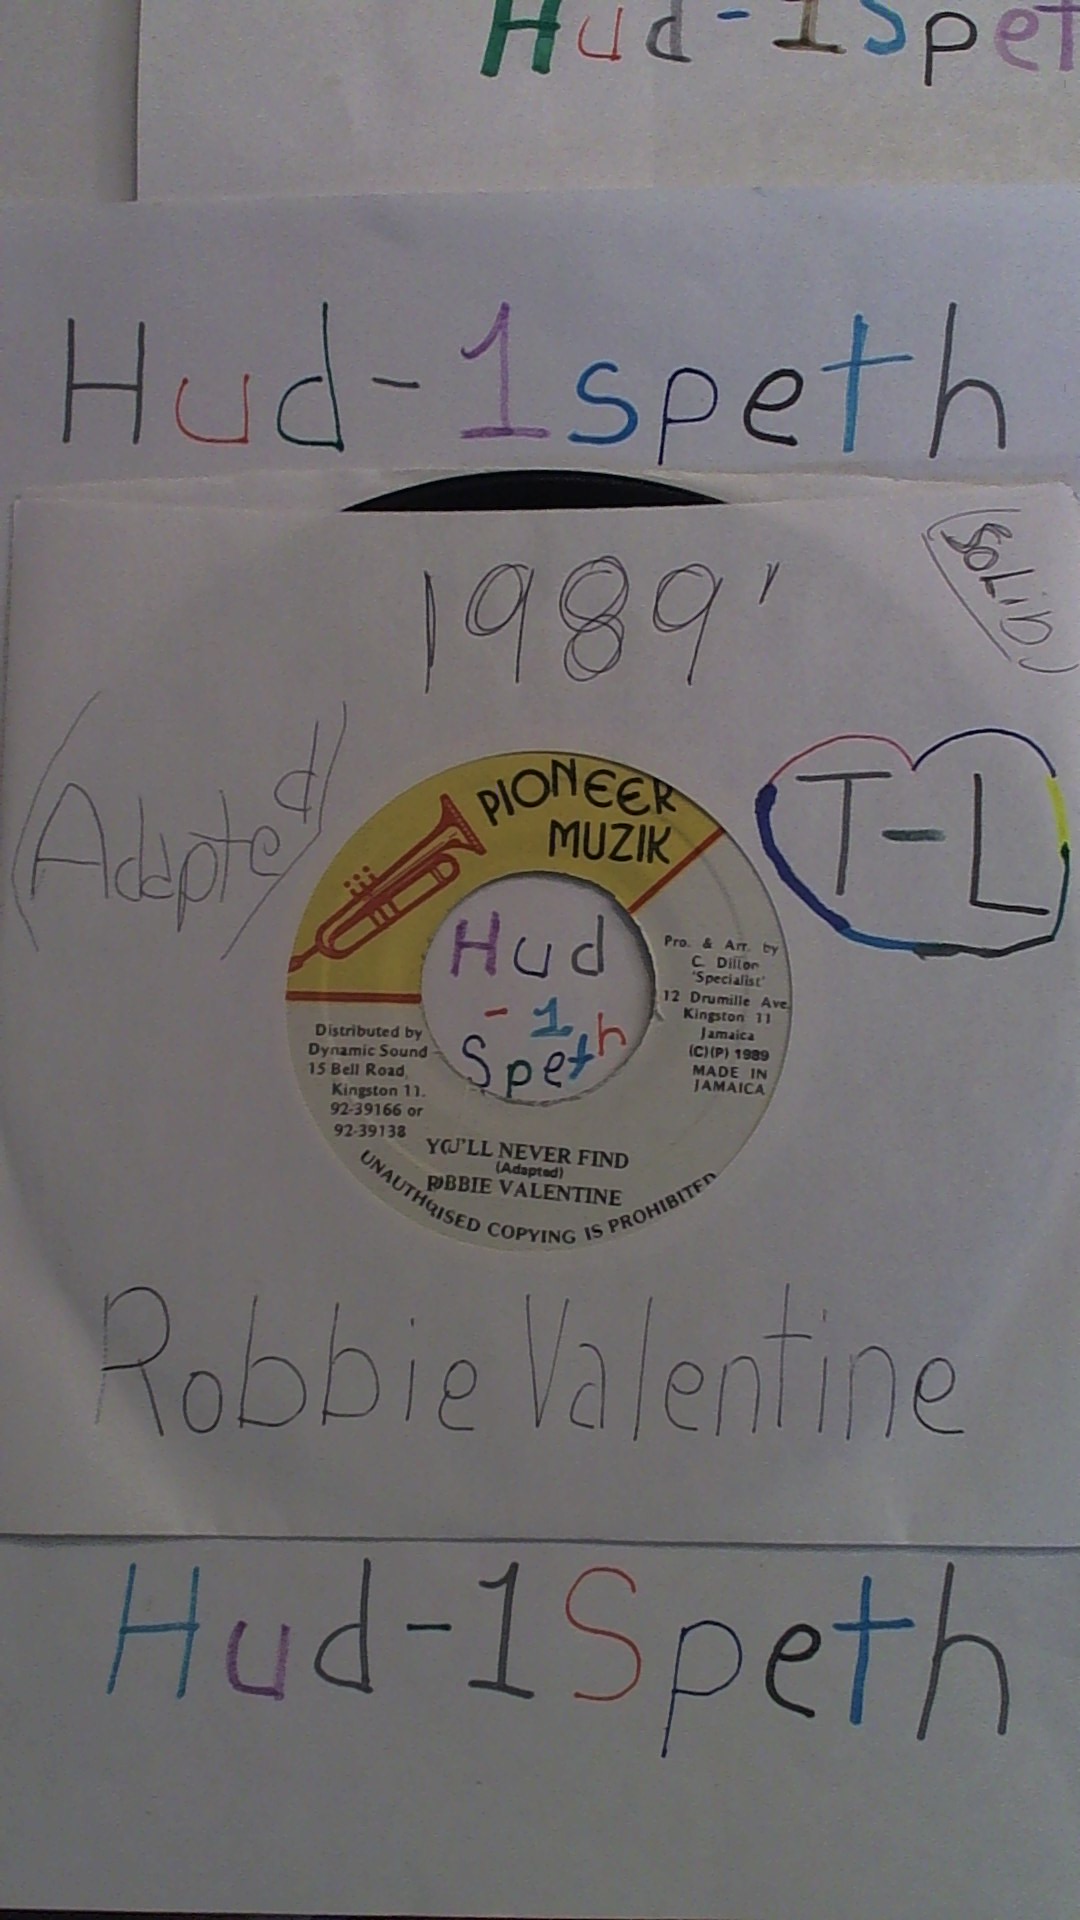 Hud-1spet
Hud-1speth
1989'
SOLID
(Adapted)
T-L
PIONEER
MUZIK
Hud
-1
Speth
Pro. & Arr. by
C. Dillon
'Specialist'
12 Drumille Ave
Kingston 11
Jamaica
(C)(P) 1989
MADE IN
JAMAICA
Distributed by
Dynamic Sound
15 Bell Road,
Kingston 11.
92-39166 or
92-39138
YOU'LL NEVER FIND
(Adapted)
ROBBIE VALENTINE
UNAUTHORISED COPYING IS PROHIBITED
Robbie Valentine
Hud-1Speth